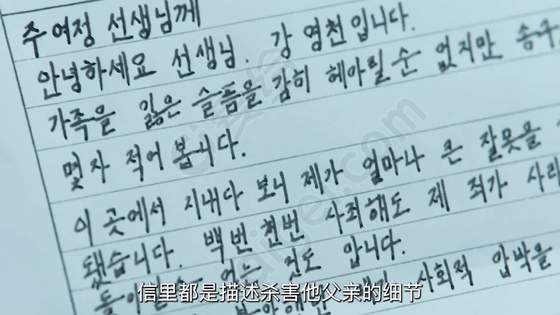 주여정 선생님께
안녕하세요 선생님. 강 영천입니다.
가족을 잃은 슬픔을 감히 헤아릴 순 없지만 송구
몇자 적어 봅니다.
이 곳에서 지내다 보니 제가 얼마나 큰 잘못을
됐습니다. 백번 천번 사죄해도 제 죄가 사라
없는 것도 압니다.
사회적 압박을
信里都是描述杀害他父亲的细节